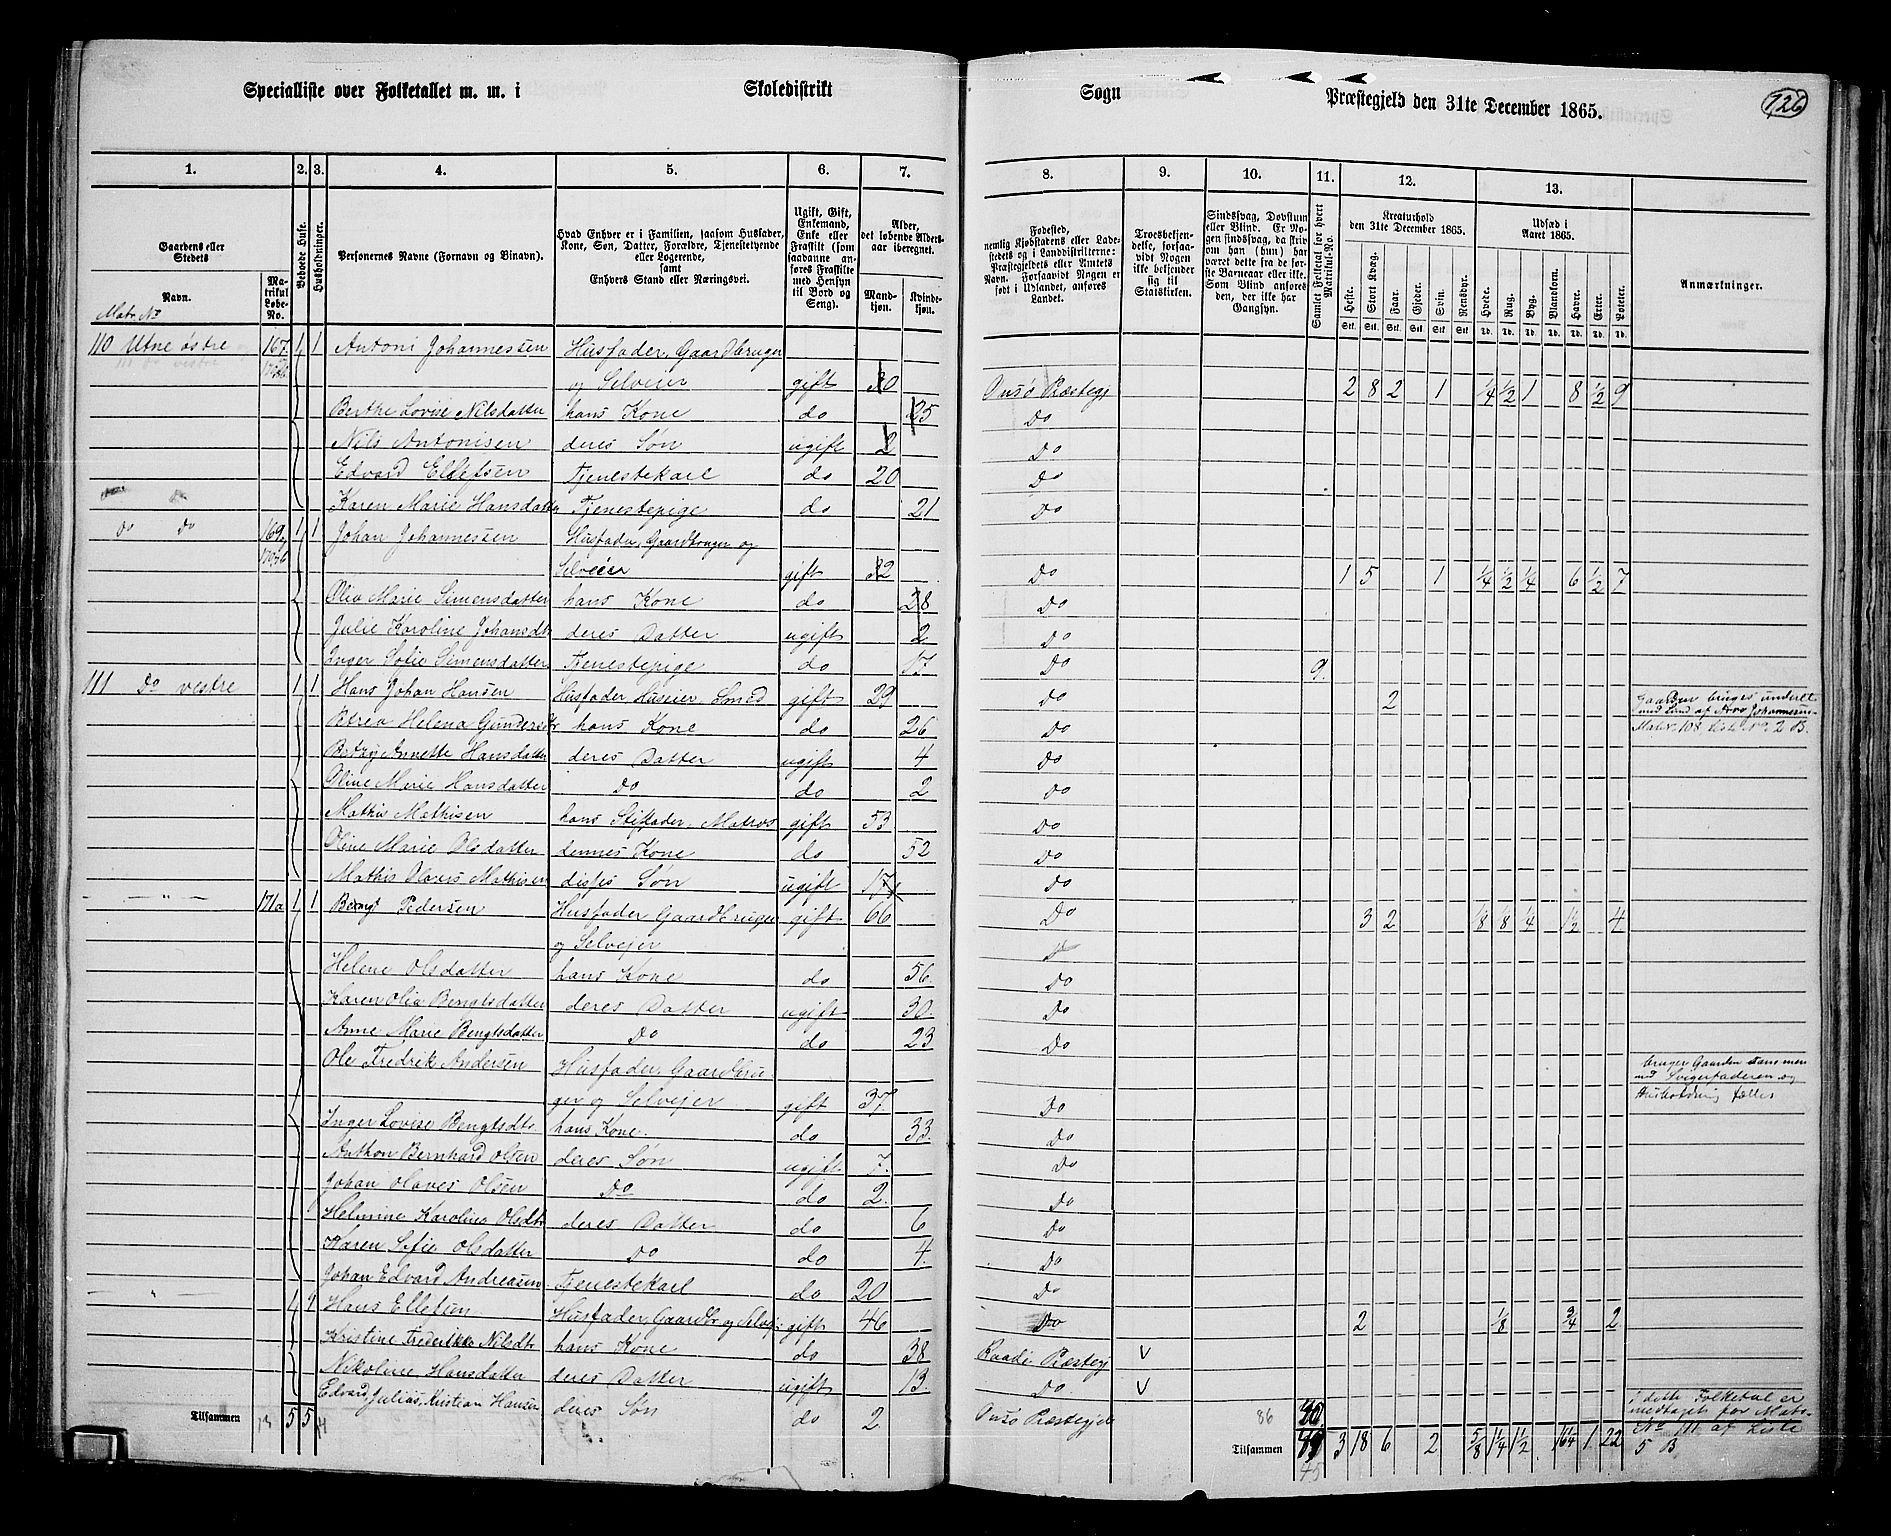 Specialliste over Folketallet m. m. i Skoledistrikt Sogn Præstegjeld den 31te December 1865. 126
1. 2. 3. 4. 5. 6. 7. 8. 9. 10. 11. 12. 13.
Gaardens eller Stedets Navn. Matrikul Løbe-No. Beboede Huse. Husholdninger. Personernes Navne (Fornavn og Binavn). Hvad Enhver er i Familien, saasom Husfader, Kone, Søn, Datter, Forældre, Tjenestetyende eller Logerende, samt Enhvers Stand eller Næringsvei. Ugift, Gift, Enkemand, Enke eller Fraskilt (som saadanne anføres Fraskilte med Hensyn til Bord og Seng). Alder, det løbende Aldersaar iberegnet. Mandkjøn. Kvindekjøn.
Fødested, nemlig Kjøbstadens eller Ladestedets og i Landdistrikterne Præstegjeldets eller Amtets Navn. Forsaavidt Nogen er født i Udlandet, anføres Landet. Troesbekjendelse, forsaavidt Nogen ikke bekjender sig til Statskirken. Sindssvag, Døvstum eller Blind. Er Nogen sindssvag, da skrives om han (hun) har været dette fra de første Barneaar eller ikke. Som Blind anføres den, der ikke har Gangsyn. Samlet Folketal for hvert Matrikul-No. Kreaturhold den 31te December 1865. Heste. Stort Kvæg. Faar. Gjeder. Svin. Rensdyr. Udsæd i Aaret 1865. Hvede. Rug. Byg. Blandkorn. Havre. Erter. Poteter. Anmærkninger.
Stk. Stk. Stk. Stk. Stk. Stk. Td. Td. Td. Td. Td. Td. Td.
Matr. No
110 Utne østre 167 1 1 Antoni Johannessen Husfader, Gaardbruger
og Selveier gift 30 Onsø Præstegj 2 8 2 1 1/4 1/2 1 8 1/2 9
Berthe Lovise Nilsdatter hans Kone do 25 Do
Nils Antonisen deres Søn ugift 2 Do
Edvard Ellefsen Tjenestekarl do 20 Do
Karen Marie Hansdatter Tjenestepige do 21 Do
do do 169 1 1 Johan Johannessen Husfader, Gaardbruger og
Selveier gift 32 Do 1 5 1 1/4 1/2 1/4 6 1/2 7
Olia Marie Simensdatter hans Kone do 28 Do
Julie Karoline Johansdt deres Datter ugift 2 Do
Inger Sofie Simensdatter Tjenestepige do 17 Do 9.
111 Do vestre 1 1 Hans Johan Hansen Husfader, Huseier, Smed gift 29 Do 2 Gaarden bruges underet
med Lund af Arve Johannesen
Petrea Helena Gundersdtr hans Kone do 26 Do Matr. 108, Liste No 2 B.
Betzy Annette Hansdatter deres Datter ugift 4 Do
Oline Marie Hansdatter Do do 2 Do
Mathis Mathisen hans Stiffader, Matros gift 53 Do
Oline Marie Olsdatter dennes Kone do 52 Do
Mathis Olaves Mathisen disses Søn ugift 17 Do
— " — 171a 1 1 Bengt Pedersen Husfader Gaardbruger gift 66 Do 3 2 1/8 1/8 1/4 1 1/2 4
og Selvejer
Helene Olsdatter hans Kone do 56 Do
Karen Olia Bengtsdatter deres Datter ugift 30. Do
Anne Marie Bengtsdatter Do do 23 Do
Ole Fredrik Andersen Husfader, Gaardbru- bruger Gaarden sammen
med Svigerfaderen og
ger og Selvejer gift 37. Do Husholdning fælles
Inger Lovise Bengtsdtr. hans Kone. do 33. Do
Anthon Bernhard Olsen deres Søn ugift 7. Do
Johan Olaves Olsen Do do 2. Do
Helmine Karoline Olsdtr deres Datter do 6 Do
Karen Sofie Olsdatter Do do 4. Do
Johan Edvard Andreasen Tjenestekarl do 20 Do
— " — 1 1 Hans Ellefsen Husfader, Gaardbr og Selvej: gift 46 Do 2 1/8 3/4 2
Kristine Frederikke Nilsdtr hans Kone do 38 Raade Præstegj V
Nikoline Hansdatter deres Datter ugift 13. Do V
Edvard Julius, Kristian Hansen deres Søn do 2. Onsø Præstegjeld 86 i dette Folketal er
medtaget for Matr.
No 111 af Liste
5 B
Tilsammen 5 5 Tilsammen 45 3 18 6 2 5/8 1 1/4 1 1/2 16 1/4 1 22